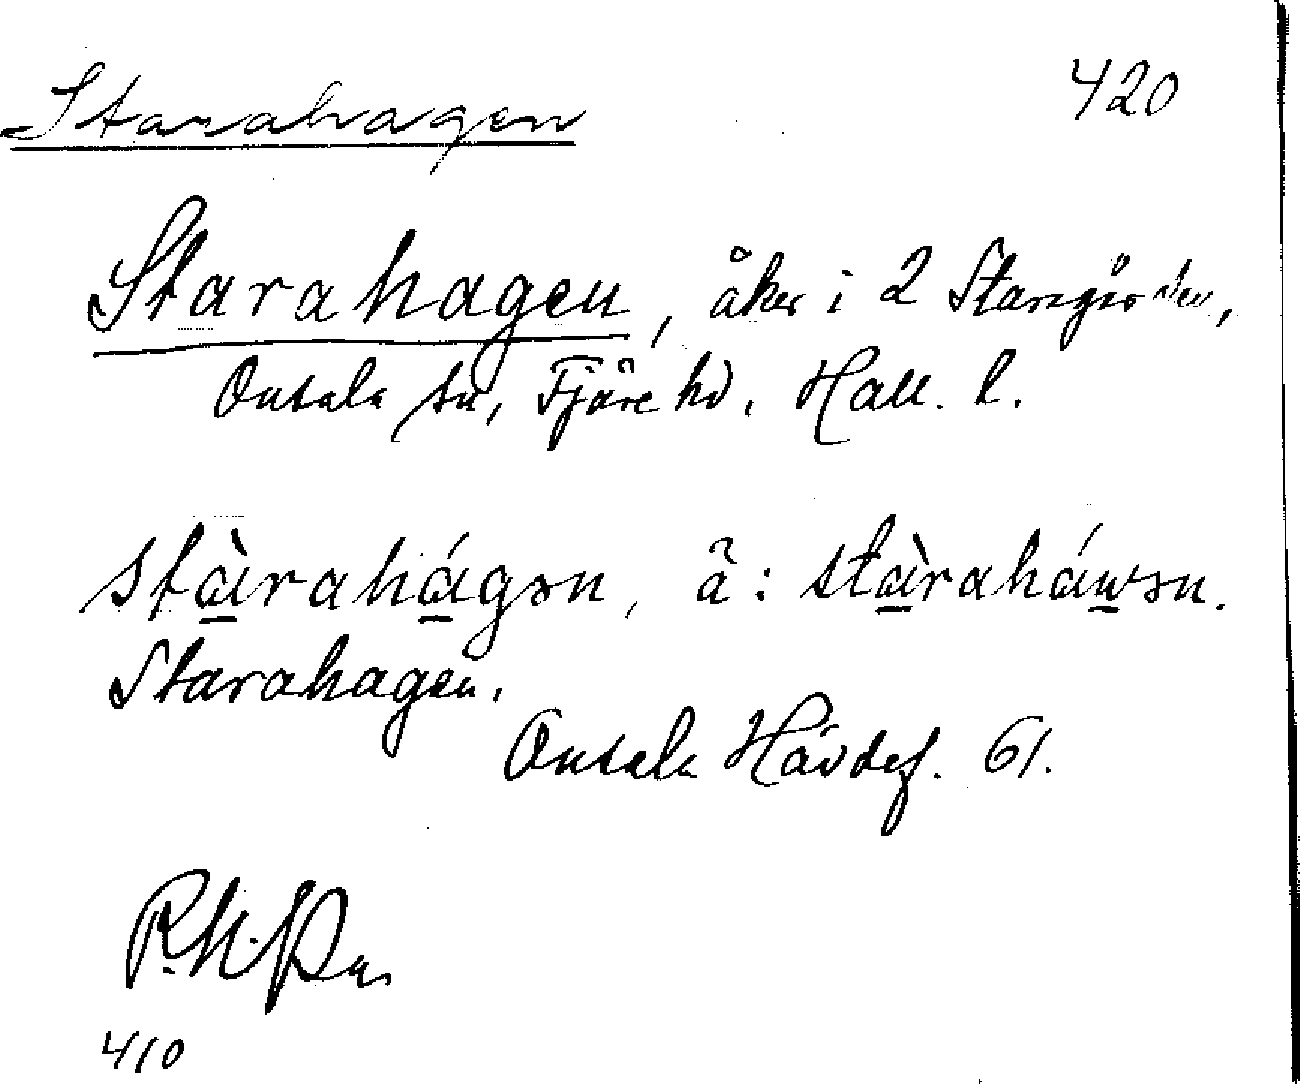 Starahagen 420
Starahagen, åker i 2 Staregården,
Onsala sn, Fjäre hd. Hall. l.
stàrahágən, ä: stàraháwən.
Starahagen.
Onsala Hävdef. 61.
410